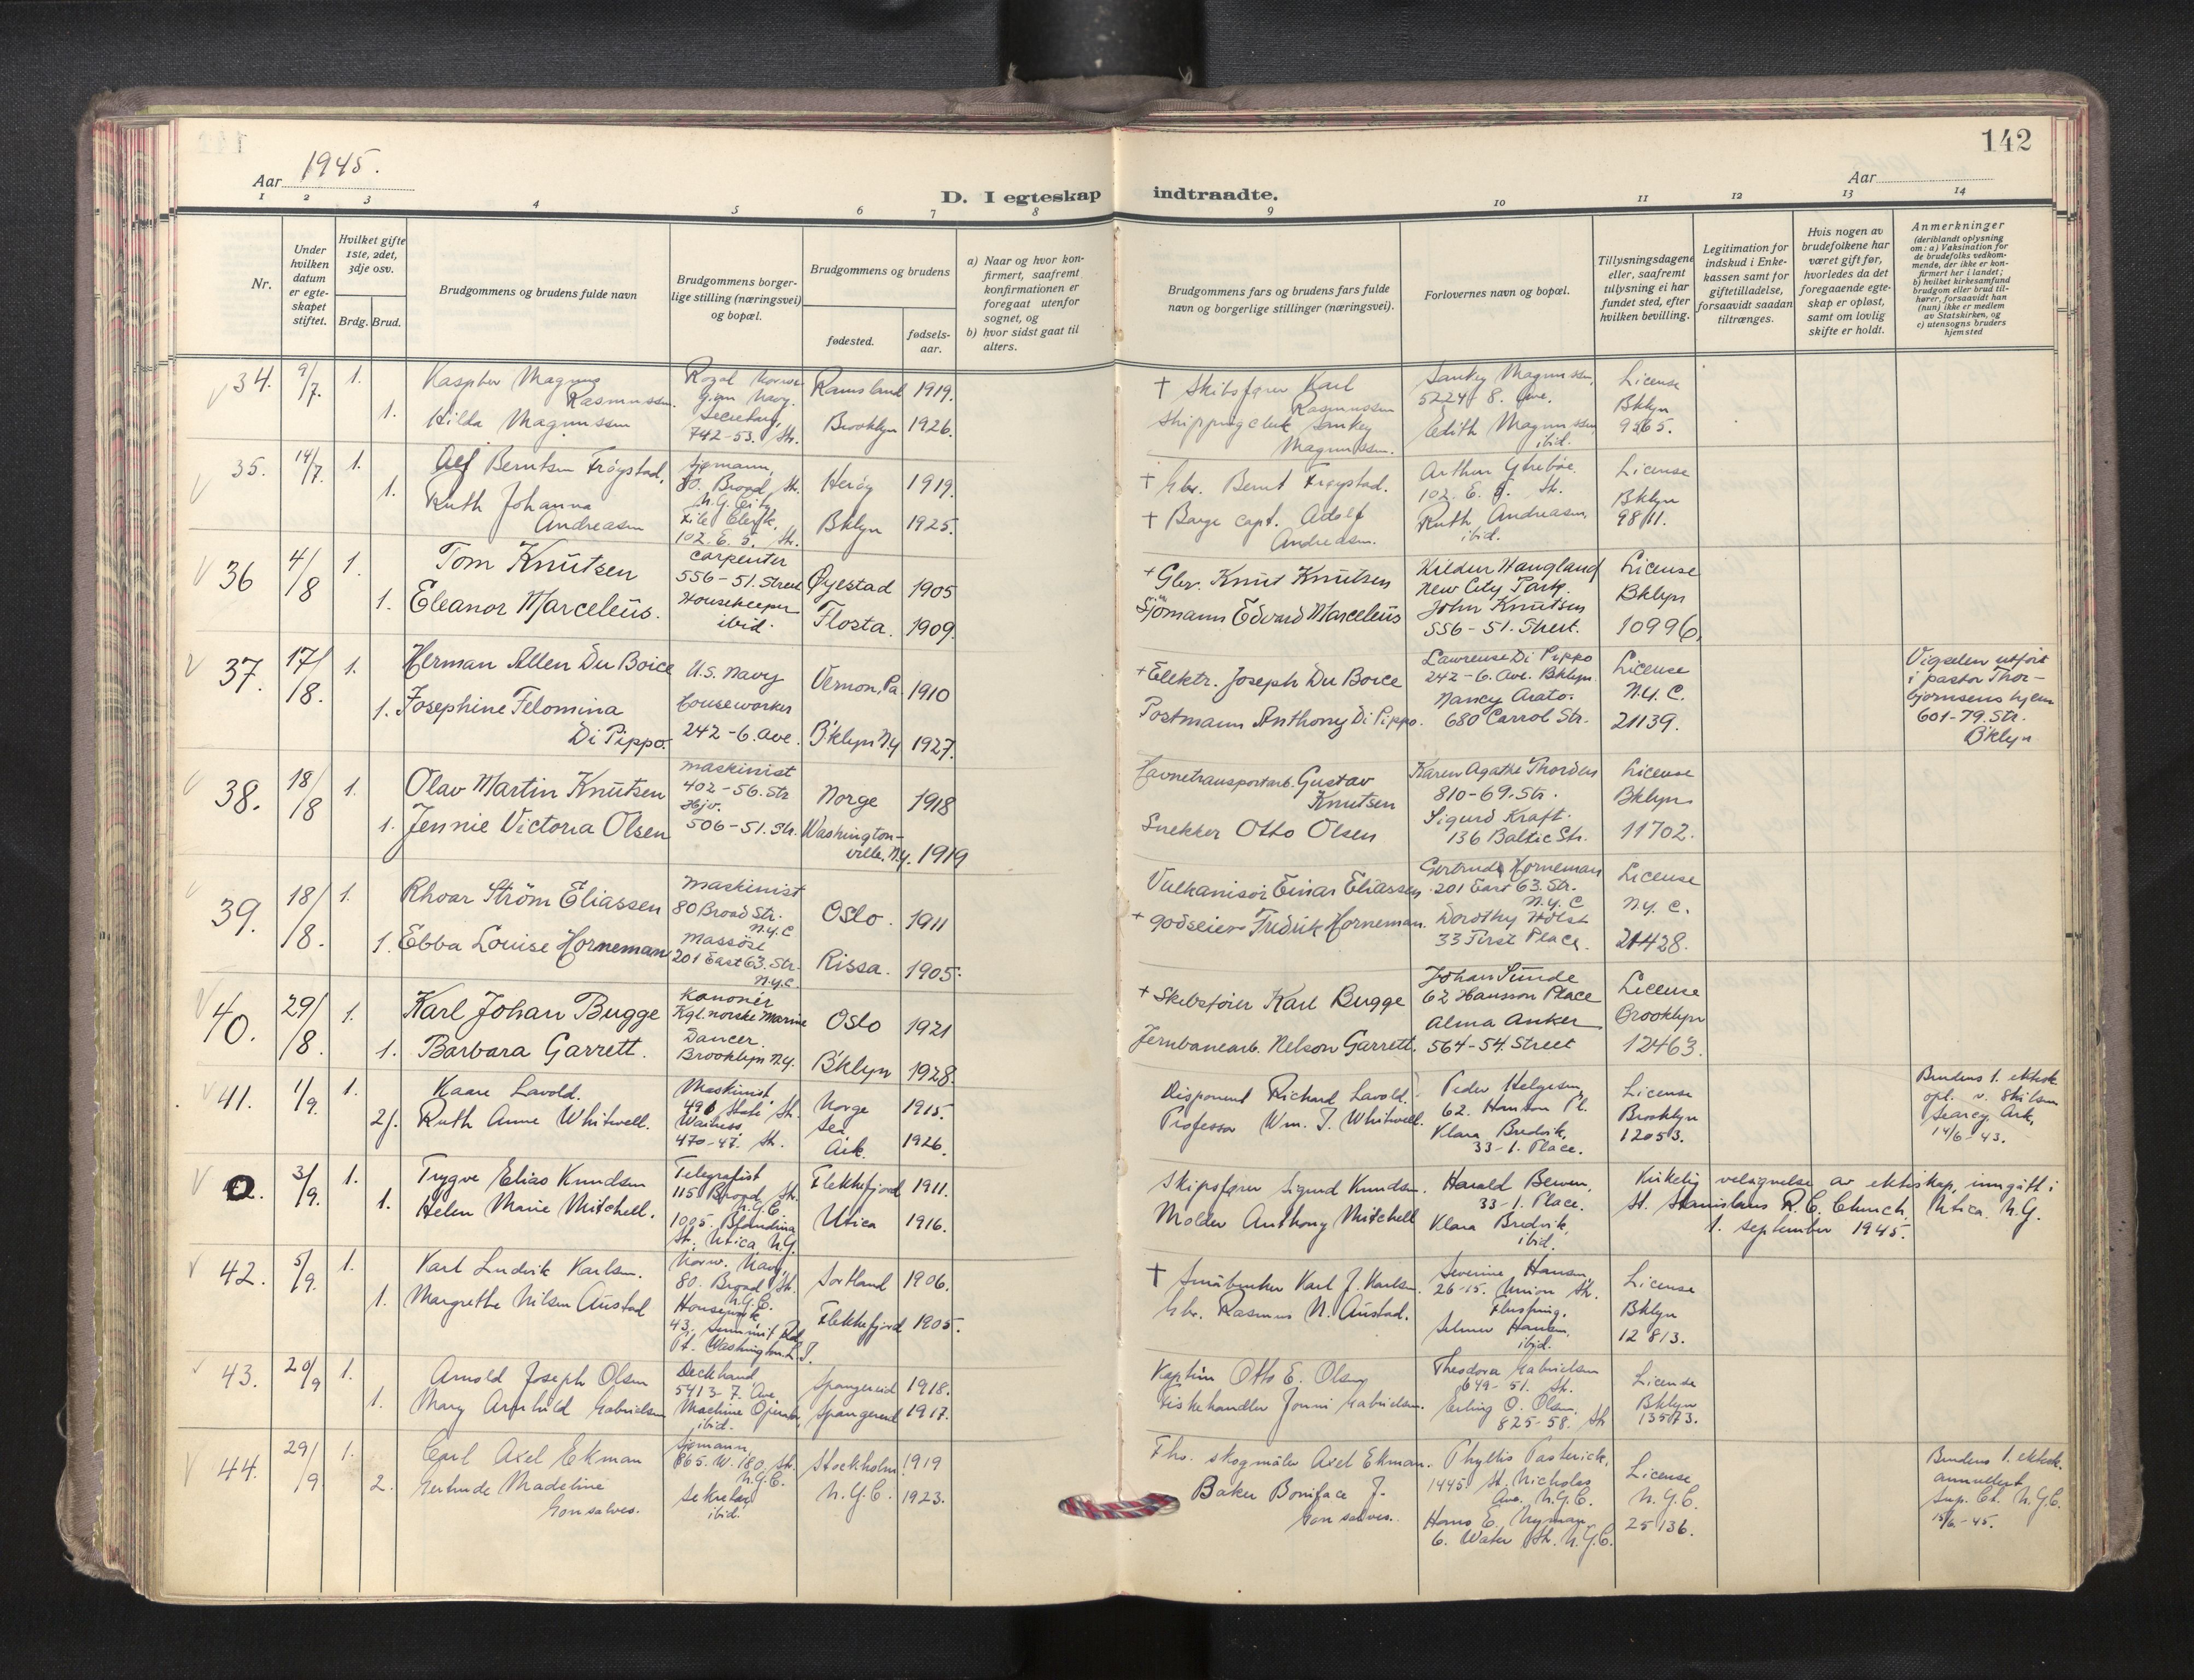 142
Aar 1945.
Aar
D. I egteskap indtraadte.
1 2 3 4 5 6 7 8 9 10 11 12 13 14
Nr.
Under hvilken datum er egteskapet stiftet.
Hvilket gifte 1ste, 2det, 3dje osv.
Brdg. Brud.
Brudgommens og brudens fulde navn
Brudgommens borgerlige stilling (næringsvei) og bopæl.
Brudgommens og brudens
fødested.
fødselsaar.
a) Naar og hvor konfirmert, saafremt konfirmationen er foregaat utenfor sognet, og
b) hvor sidst gaat til alters.
Brudgommens fars og brudens fars fulde navn og borgerlige stillinger (næringsvei).
Forlovernes navn og bopæl.
Tillysningsdagene eller, saafremt tillysning ei har fundet sted, efter hvilken bevilling.
Legitimation for indskud i Enkekassen samt for giftetilladelse, forsaavidt saadan tiltrænges.
Hvis nogen av brudefolkene har været gift før, hvorledes da det foregaaende egteskap er opløst, samt om lovlig skifte er holdt.
Anmerkninger
(deriblandt oplysning om: a) Vaksination for de brudefolks vedkommende, der ikke er konfirmert her i landet; b) hvilket kirkesamfund brudgom eller brud tilhører, forsaavidt han (hun) ikke er medlem av Statskirken, og c) utensogns bruders hjemsted
34. 9/7. 1. Magnus Rasmussen. Royal Norwegian Navy. Ramsland 1919. † Skibsfører Karl Rasmussen Sankey Magnussen, 5224 8. Ave. License
1. Hilda Magnussen Secretary, 742-53. Str. Brooklyn 1926. Shippingclerk Sankey Magnussen. Edith Magnussen, ibid. Bklyn 9565.
35. 14/7. 1. Alf Berntsen Frøystad, Sjømann, 80. Broad Str. N.Y. City Herøy 1919. † Gbr. Bernt Frøystad. Arthur Ytrebøe 102. E. 5. Str. License
1. Ruth Johanna Andreasen File Clerk, 102. E. 5. Str. Bklyn 1925. † Barge capt. Adolf Andreasen. Ruth Andreasen, ibid. Bklyn 9811.
36 4/8 1. Tom Knutsen Carpenter 556-51. Street Øyestad 1905 + Gbr. Knut Knutsen Haugland New City Park. License
1. Eleanor Marcelius. Housekeeper ibid. Flosta. 1909. Sjömann Edvard Marcelius John Knutsen 556-51. Street. Bklyn 10996.
37. 17/8. 1. Herman Allen Du Boice U.S. Navy Vernon, Pa 1910 + Elektr. Joseph Du Boice Lawrense Di Pippo 242-6. Ave. Bklyn. License Vigselen utført i pastor Thorbjørnsens hjem 601-79. Str. B'klyn
1. Josephine Felomina Di Pippo. Houseworker 242-6. Ave. B'klyn Ny 1927. Postmann Anthony Di Pippo. Nancy Arato. 680 Carrol Str. N.Y.C. 21139.
38. 18/8 1. Olav Martin Knutsen Maskinist 402-56. Str Norge 1918 Havnetransportarb. Gustav Knutsen Karen Agathe Thorden 810-69. Str. License
1. Jennie Victoria Olsen Hjv. 506-51. Str. Washington-ville. N.y. 1919 Snekker Otto Olsen Sigurd Kraft. 136 Baltic Str. Bklyn 11702.
39. 18/8. 1. Rhoar Ström Eliassen Maskinist 80 Broad Str. N.Y.C Oslo. 1911 Vulkanisør Einar Eliassen Gertrude Horneman 201 East 63. Str. N.Y.C License
1. Ebba Louise Horneman Massöse 201 East 63. Str. N.Y.C. Rissa. 1905. + godseier Fredrik Horneman. Dorothy Holst 33 First Place. Ny. C. 21428.
40. 29/8. 1. Karl Johan Bugge Kanonér Kgl. norske Marine Oslo 1921 + Skibsförer Karl Bugge Johan Sunde 62 Hansson Place License
1. Barbara Garrett. Dancer. Brooklyn N.Y. B'klyn 1928. Jernbanearb. Nelson Garrett. Alma Anker 564-54. Street Brooklyn 12463.
41. 1/9. 1. Kaare Lavold. Maskinist 491 State Str. Norge 1915. Disponent Richard Lavold. Peder Helgesen, 62. Hanson Pl. License Brudens 1. ektesk. opl. v. Skilsm Searcy Ark, 14/6-43.
2f. Ruth Anne Whitwell. Waitress 470-47. Str. Ark. 1926. Professor Wm. T. Whitwell. Klara Bredvik, 33-1. Place. Brooklyn 12053.
3/9. 1. Trygve Elias Knudsen Telegrafist 115 Broad Str. N.Y.C Flekkefjord 1911. Skipsfører Sigurd Knudsen. Harald 33-1. Place. Kirkelig velsignelse av ekteskap, inngått i
1. Helen Marie Mitchell. 1005. Blandina St. Utica N.Y. Utica 1916. Molder Anthony Mitchell Klara Bredvik, ibid. St. Stanislaus R.C. Church, Utica. N.Y. 1. september 1945.
42. 5/9. 1. Karl Ludvik Karlsen. Norw. Navy, 80. Broad Str. N.Y.C. Sortland 1906. † Småbruker Karl J. Karlsen. Severine Hansen, 26-15. Union Str. Flushing. License
1. Margrethe Nilsen Austad Housework, 43, Summit Rd Pt. Washington. L.I. Flekkefjord 1905. Gbr. Rasmus N. Austad. Selmer Hansen, ibid. Bklyn 12813.
43. 20/9 1. Arnold Joseph Olsen Deckhand 5413-7. Ave. Spangereid 1918. Kaptein Otto E. Olsen Theodora Gabrielsen 649-51. Str. License
1. Mary Arnhild Gabrielsen Machine Operator ibid. Spangereid 1917. Fiskehandler Jonni Gabrielsen. Erling O. Olsen, 825-58. Str Bklyn 13573.
44. 29/9 1. Carl Axel Ekman Sjømann, 865. W. 180. Str. N.Y.C. Stockholm 1919 Fhv. skogmåler Axel Ekman. Phyllis Pasterick, 1445. St. Nicholas Ave. N.Y.C. License Brudens 1. ektesk. annullert Sup. Ct. N.Y.C. 15/6-45.
2. Gertrude Madeline Gonsalves. Sekretær ibid. N.Y.C. 1923. Baker Boniface J. Gonsalves. Hans E. Nyman 6. Water Str. N.Y.C. N.Y.C. 25136.